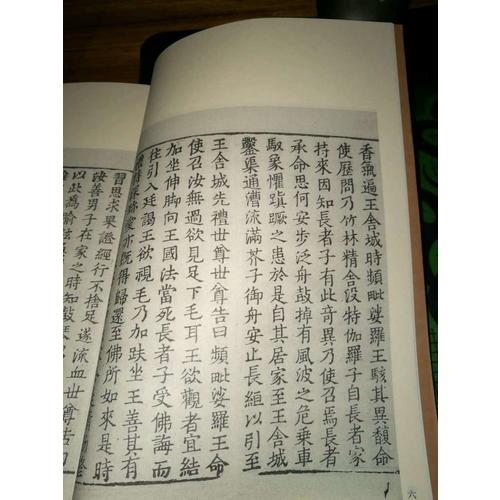 香氣遍王舍城時頻毗娑羅王駭其異馥命
使歷問乃竹林精舍没特伽羅子自長者家
持來因知長者子有此奇異乃使召焉長者
承命思何安步泛舟鼓棹有風波之危乘車
馭象懼蹎蹶之患於是自其居家至王舍城
鑿渠通漕流滿芥子御舟安止長絙以引至
王舍城先禮世尊世尊告曰頻毗娑羅王命
使召汝無過欲見足下毛耳王欲觀者宜結
加坐伸脚向王國法當死長者子受佛誨而
往引入廷謁王欲視毛乃加趺坐王善其有
禮特深珍愛亦既得歸還至佛所如來是時
習思求果證經行不捨足遂流血世尊告曰
善男子在家之時知鼓琴
以此爲喻絃
六